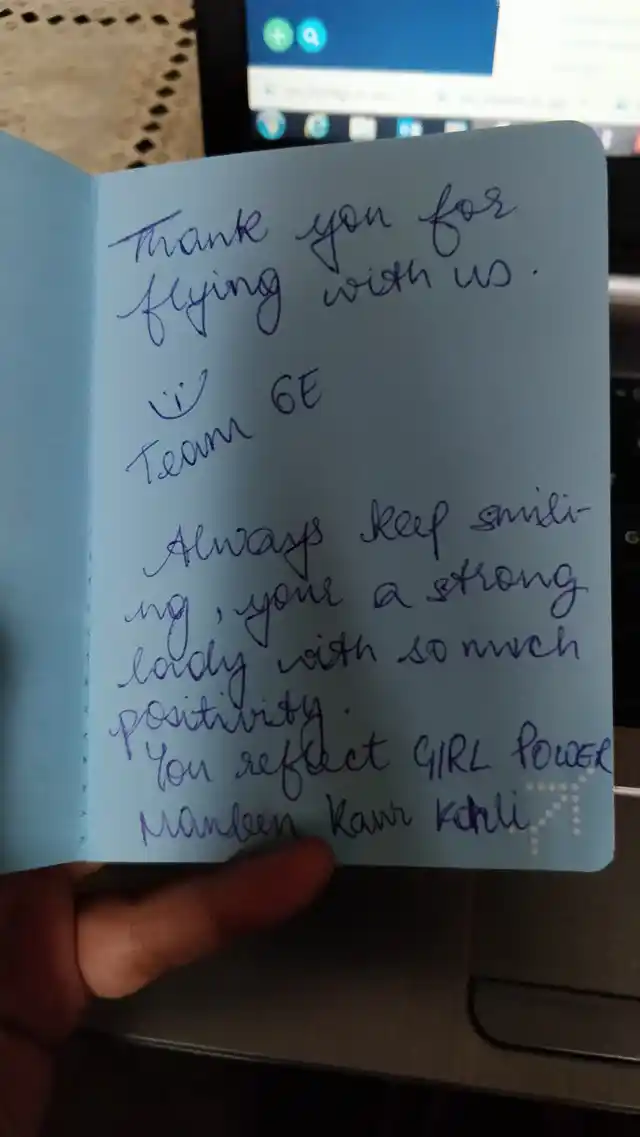 Thank you for
flying with us.
Team 6E
Always keep smili-
ng, your a strong
lady with so much
positivity.
You reflect GIRL POWER
Kaur Kohli